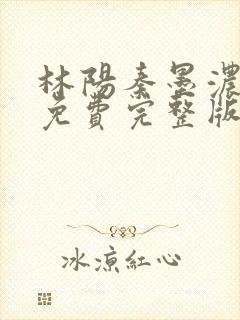 林陽秦墨濃
免費完整版
冰涼紅心